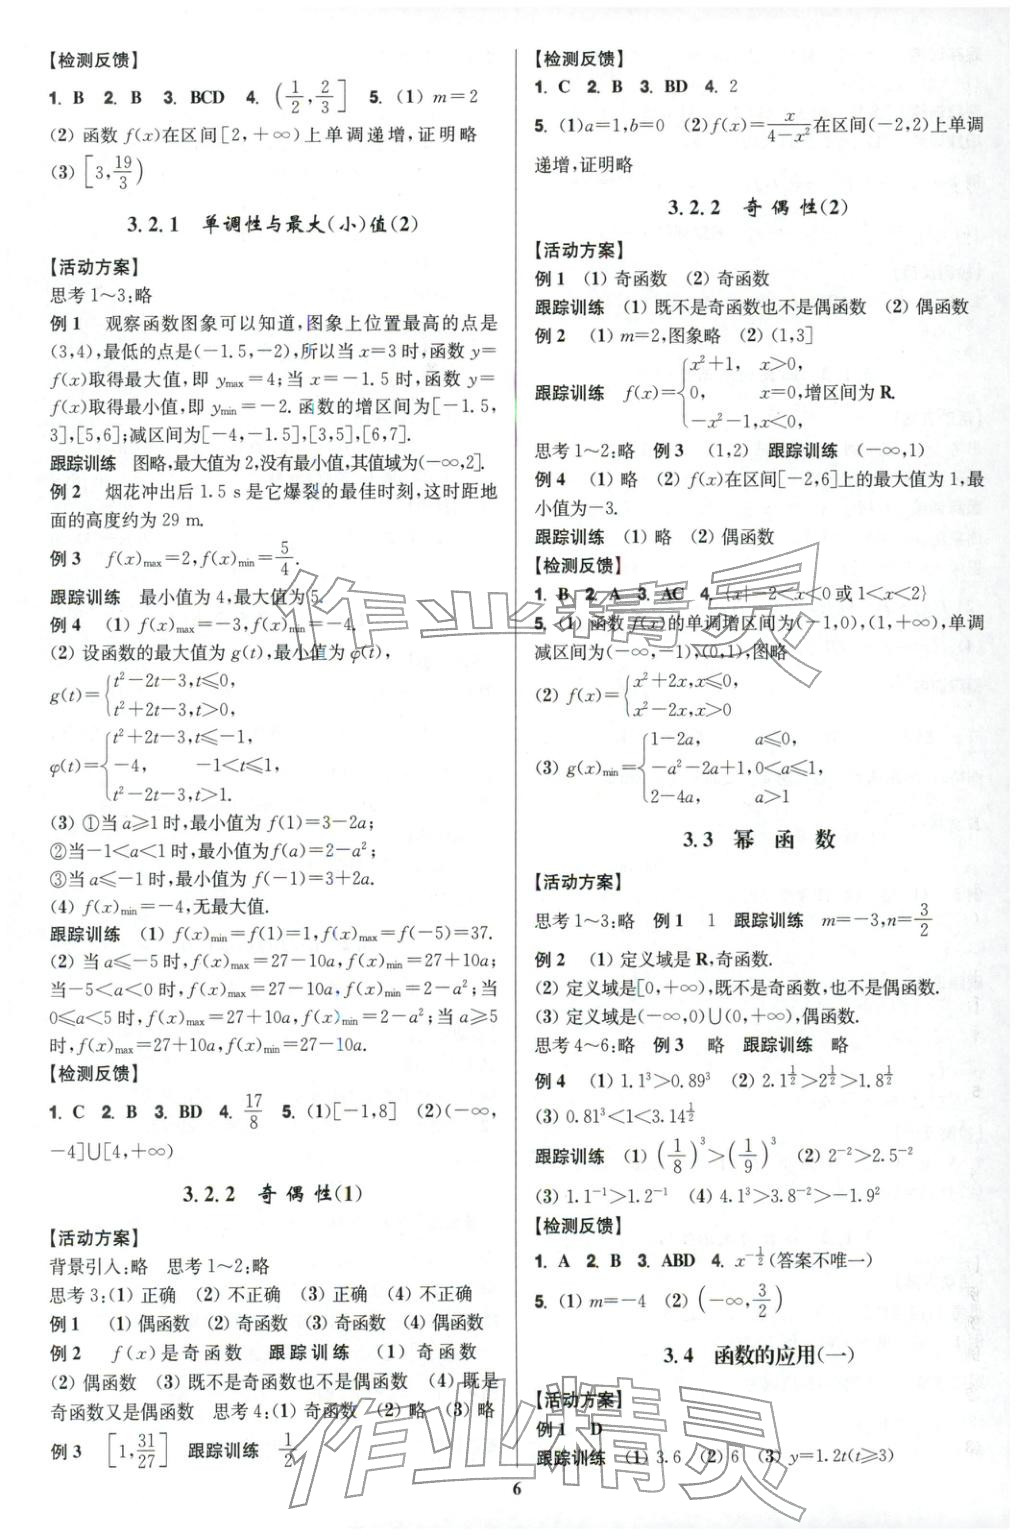 【检测反馈】
1. B 2. B 3. BCD 4. (1/2, 2/3] 5. (1) m=2
(2) 函数 f(x)在区间[2,+∞)上单调递增,证明略
(3) [3, 19/3)
3.2.1 单调性与最大(小)值(2)
【活动方案】
思考1~3:略
例1 观察函数图象可以知道,图象上位置最高的点是
(3,4),最低的点是(-1.5,-2),所以当 x=3时,函数 y=
f(x)取得最大值,即 y_max=4;当 x=-1.5 时,函数 y=
f(x)取得最小值,即 y_min=-2. 函数的增区间为[-1.5,
3],[5,6];减区间为[-4,-1.5],[3,5],[6,7].
跟踪训练 图略,最大值为2,没有最小值,其值域为(-∞,2].
例2 烟花冲出后1.5 s是它爆裂的最佳时刻,这时距地
面的高度约为29 m.
例3 f(x)_max=2,f(x)_min=5/4.
跟踪训练 最小值为4,最大值为5.
例4 (1) f(x)_max=-3,f(x)_min=-4.
(2) 设函数的最大值为 g(t),最小值为 φ(t),
g(t)={t²-2t-3,t≤0,
t²+2t-3,t>0,
φ(t)={t²+2t-3,t≤-1,
-4, -1<t≤1,
t²-2t-3,t>1.
(3) ①当 a≥1 时,最小值为 f(1)=3-2a;
②当-1<a<1时,最小值为f(a)=2-a²;
③当 a≤-1 时,最小值为 f(-1)=3+2a.
(4) f(x)_min=-4,无最大值.
跟踪训练 (1) f(x)_min=f(1)=1,f(x)_max=f(-5)=37.
(2) 当 a≤-5 时,f(x)_max=27-10a,f(x)_min=27+10a;
当-5<a<0 时,f(x)_max=27-10a,f(x)_min=2-a²;当
0≤a<5 时,f(x)_max=27+10a,f(x)_min=2-a²;当 a≥5
时,f(x)_max=27+10a,f(x)_min=27-10a.
【检测反馈】
1. C 2. B 3. BD 4. 17/8 5. (1)[-1,8] (2)(-∞,
-4]∪[4,+∞)
3.2.2 奇偶性(1)
【活动方案】
背景引入:略 思考1~2:略
思考3:(1) 正确 (2) 不正确 (3) 正确 (4) 不正确
例1 (1) 偶函数 (2) 奇函数 (3) 奇函数 (4) 偶函数
例2 f(x)是奇函数 跟踪训练 (1) 奇函数
(2) 偶函数 (3) 既不是奇函数也不是偶函数 (4) 既是
奇函数又是偶函数 思考4:(1) 奇函数 (2) 略 (3) 略
例3 [1, 31/27] 跟踪训练 1/2
【检测反馈】
1. C 2. B 3. BD 4. 2
5. (1)a=1,b=0 (2)f(x)=x/(4-x²)在区间(-2,2)上单调
递增,证明略
3.2.2 奇偶性(2)
【活动方案】
例1 (1) 奇函数 (2) 奇函数
跟踪训练 (1) 既不是奇函数也不是偶函数 (2) 偶函数
例2 (1) m=2,图象略 (2) (1,3]
跟踪训练 f(x)={x²+1, x>0,
0, x=0,增区间为 R.
-x²-1,x<0,
思考1~2:略 例3 (1,2) 跟踪训练 (-∞,1)
例4 (1) 略 (2) f(x)在区间[-2,6]上的最大值为1,最
小值为-3.
跟踪训练 (1) 略 (2) 偶函数
【检测反馈】
1. B 2. A 3. AC 4. {x|-2<x<0 或1<x<2}
5. (1) 函数 f(x)的单调增区间为(-1,0),(1,+∞),单调
减区间为(-∞,-1),(0,1),图略
(2) f(x)={x²+2x,x≤0,
x²-2x,x>0
(3) g(x)_min={1-2a, a≤0,
-a²-2a+1,0<a≤1,
2-4a, a>1
3.3 幂函数
【活动方案】
思考1~3:略 例1 1 跟踪训练 m=-3,n=3/2
例2 (1) 定义域是 R,奇函数.
(2) 定义域是[0,+∞),既不是奇函数,也不是偶函数.
(3) 定义域是(-∞,0)∪(0,+∞),偶函数.
思考4~6:略 例3 略 跟踪训练 略
例4 (1) 1.1³>0.89³ (2) 2.1^(1/2)>2^(1/2)>1.8^(1/2)
(3) 0.81³<1<3.14^(1/2)
跟踪训练 (1) (1/8)³>(1/9)³ (2) 2⁻²>2.5⁻²
(3) 1.1⁻¹>1.2⁻¹ (4) 4.1³>3.8⁻²>-1.9²
【检测反馈】
1. A 2. B 3. ABD 4. x^(-1/2)(答案不唯一)
5. (1) m=-4 (2) (-∞, 3/2)
3.4 函数的应用(一)
【活动方案】
例1 D
跟踪训练 (1) 3.6 (2) 6 (3) y=1.2t(t≥3)
6
作业精灵
作业精灵